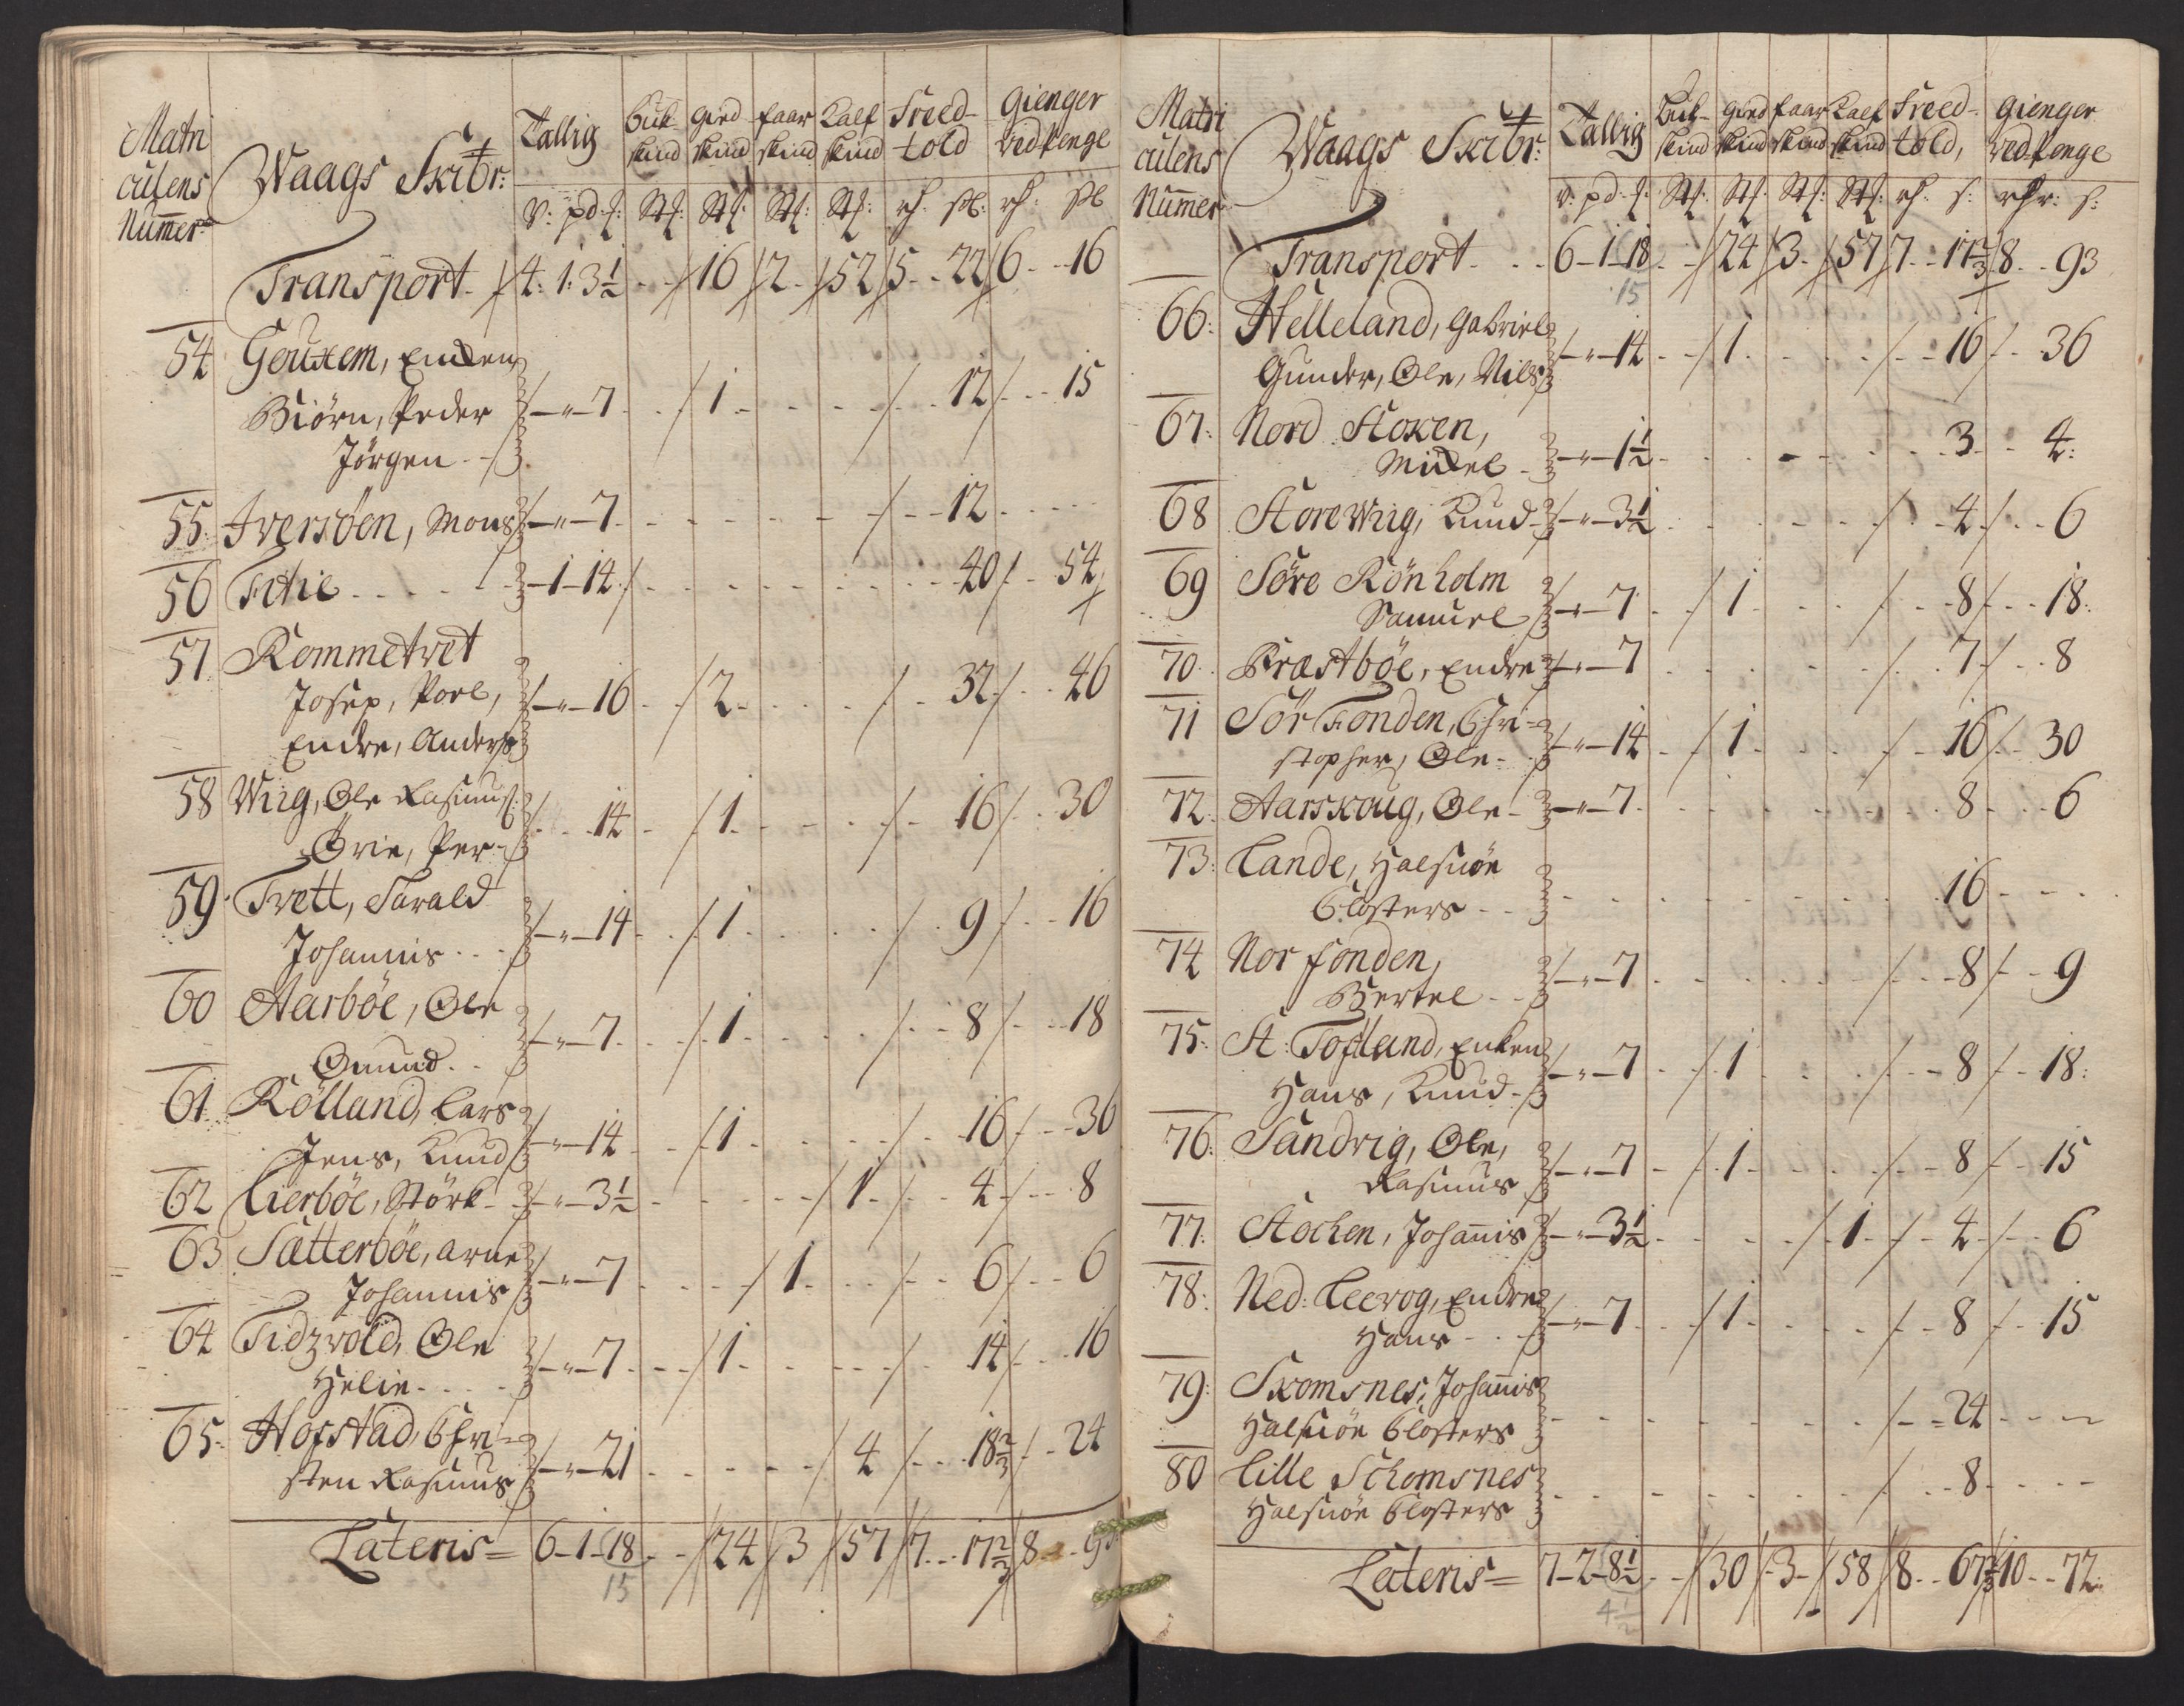 Matri
culens
Nummer
Waags Skibr:
Tallig
Buk
skind
Gied
skind
faar
skind
Kalf
skind
Leed-
told
Gienger
ved penge
Transport 4: 1: 3½ 16 2 52 5 22 6 16
54 Geuxem, Enken
Biörn, Peder 7 1 12 15
Jörgen
55 Iversöen, Mons 7 12
56 Fitie 1 14 40 54
57 Kommetvet
Josep, Poel, 16 2 32 46
Endre, Anders
58 Wiig, Ole Rasmus 14 1 16 30
Örie, Per
59 Tvett, Tarald
Johannis 14 1 9 16
60 Aarböe, Ole
Omund 7 1 8 18
61 Kölland, Lars
Jens, Knud 14 1 16 36
62 Lierböe, Störk 3½ 1 4 8
63 Sætterböe, Arne
Johannis 7 1 6 6
64 Tidzvold, Ole
Helie 7 1 14 16
65 Hofstad, Chri-
sten Rasmus 21 4 18⅔ 24
Lateris 6 1 18 24 3 57 7 17⅔ 8
15
Matri
culens
Nummer
Waags Skibr:
Tallig
Buk-
skind
Gied
skind
faar
skind
Kalf
skind
Leed-
told,
Gienger
ved penge
Transport 6 1 18 24 3 57 7 17⅔ 8 93
15
66: Helleland, Gabriel
Gunder, Ole, Nils 14 1 16 36
67: Nord Stoxen,
Mickel 1½ 3 4
68 Store Wiig, Knud 3½ 4 6
69 Söre Rönholm
Samuel 7 1 8 18
70 Præstböe, Endre 7 7 8
71 Sör Fonden, Chri-
stopher, Ole 14 1 16 30
72 Aarskoug, Ole 7 8 6
73: Lande, Halsnöe
Closters 16
74 Nor fonden,
Bertel 7 8 9
75: St: Tofland, Enken
Hans, Knud 7 1 8 18
76: Sandvig, Ole,
Rasmus 7 1 8 15
77: Stochen, Johannis 3½ 1 4 6
78: Ned: Leervog, Endre
Hans 7 1 8 15
79: Skomsnes, Johannis
Halsnöe Closters 24
80 Lille Schomsnes
Halsnöe Closters 8
Lateris 7 2 8½ 30 3 58 8 67⅔ 10 72
4½